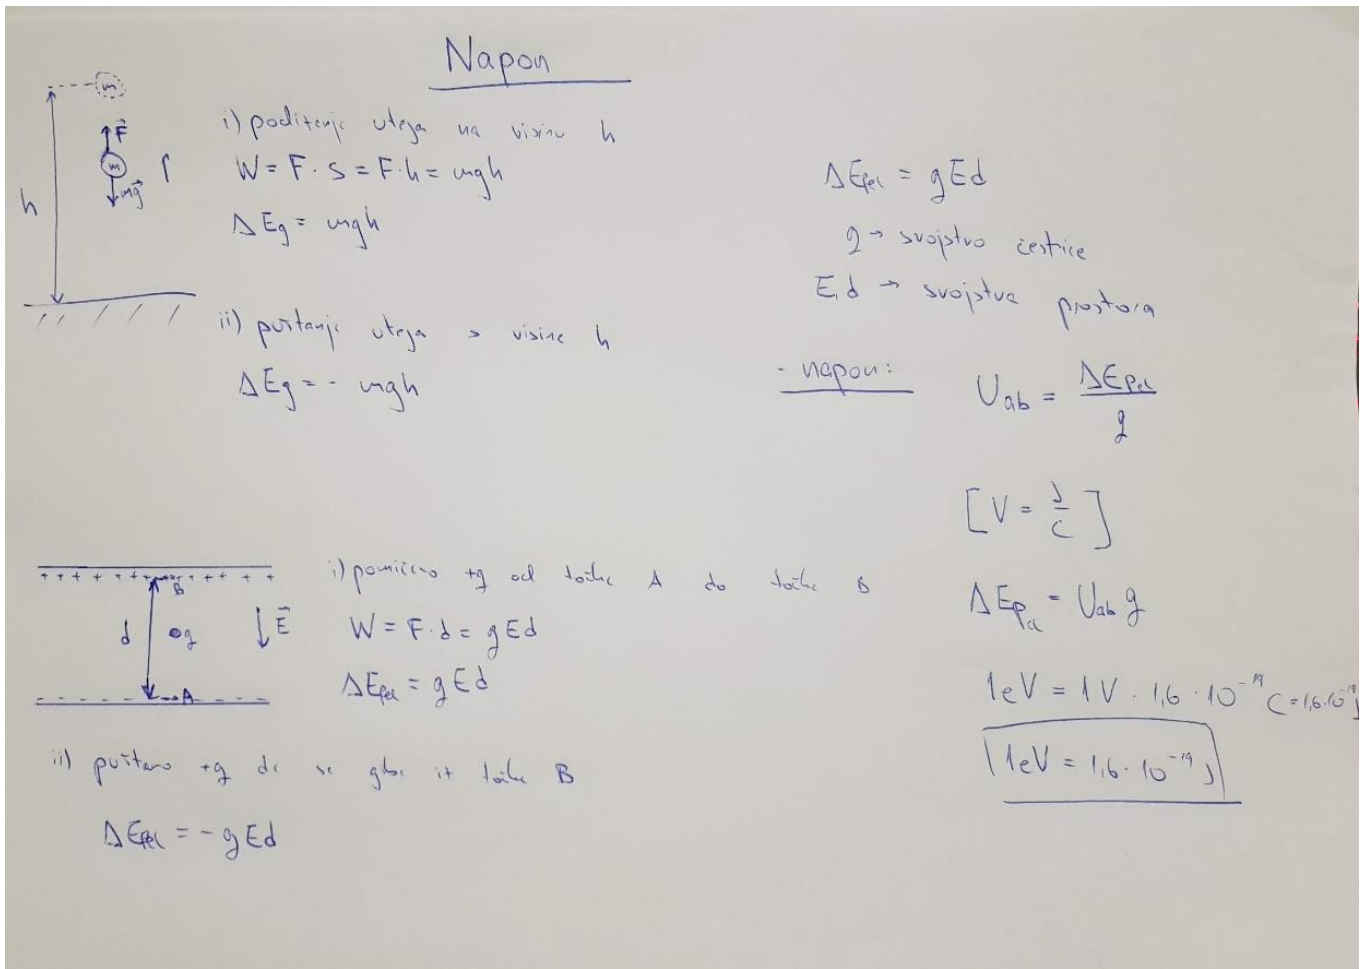 Napon
m
F⃗
m
mg⃗
h
i) podizanje utega na visinu h
W = F · s = F·h = mgh
ΔEg = mgh
ii) puštanje utega s visine h
ΔEg = - mgh
+ + + + + + + + + + + +
B
d
q
E⃗
A
i) pomičemo +q od točke A do točke B
W = F·d = qEd
ΔEpel = qEd
ii) puštamo +q da se giba iz točke B
ΔEpel = - qEd
ΔEpel = qEd
q → svojstvo čestice
E, d → svojstva prostora
- napon:
Uab = ΔEpel / q
[V = J/C]
ΔEpel = Uab q
1eV = 1V · 1,6 · 10⁻¹⁹ C = 1,6·10⁻¹⁹ J
1eV = 1,6 · 10⁻¹⁹ J